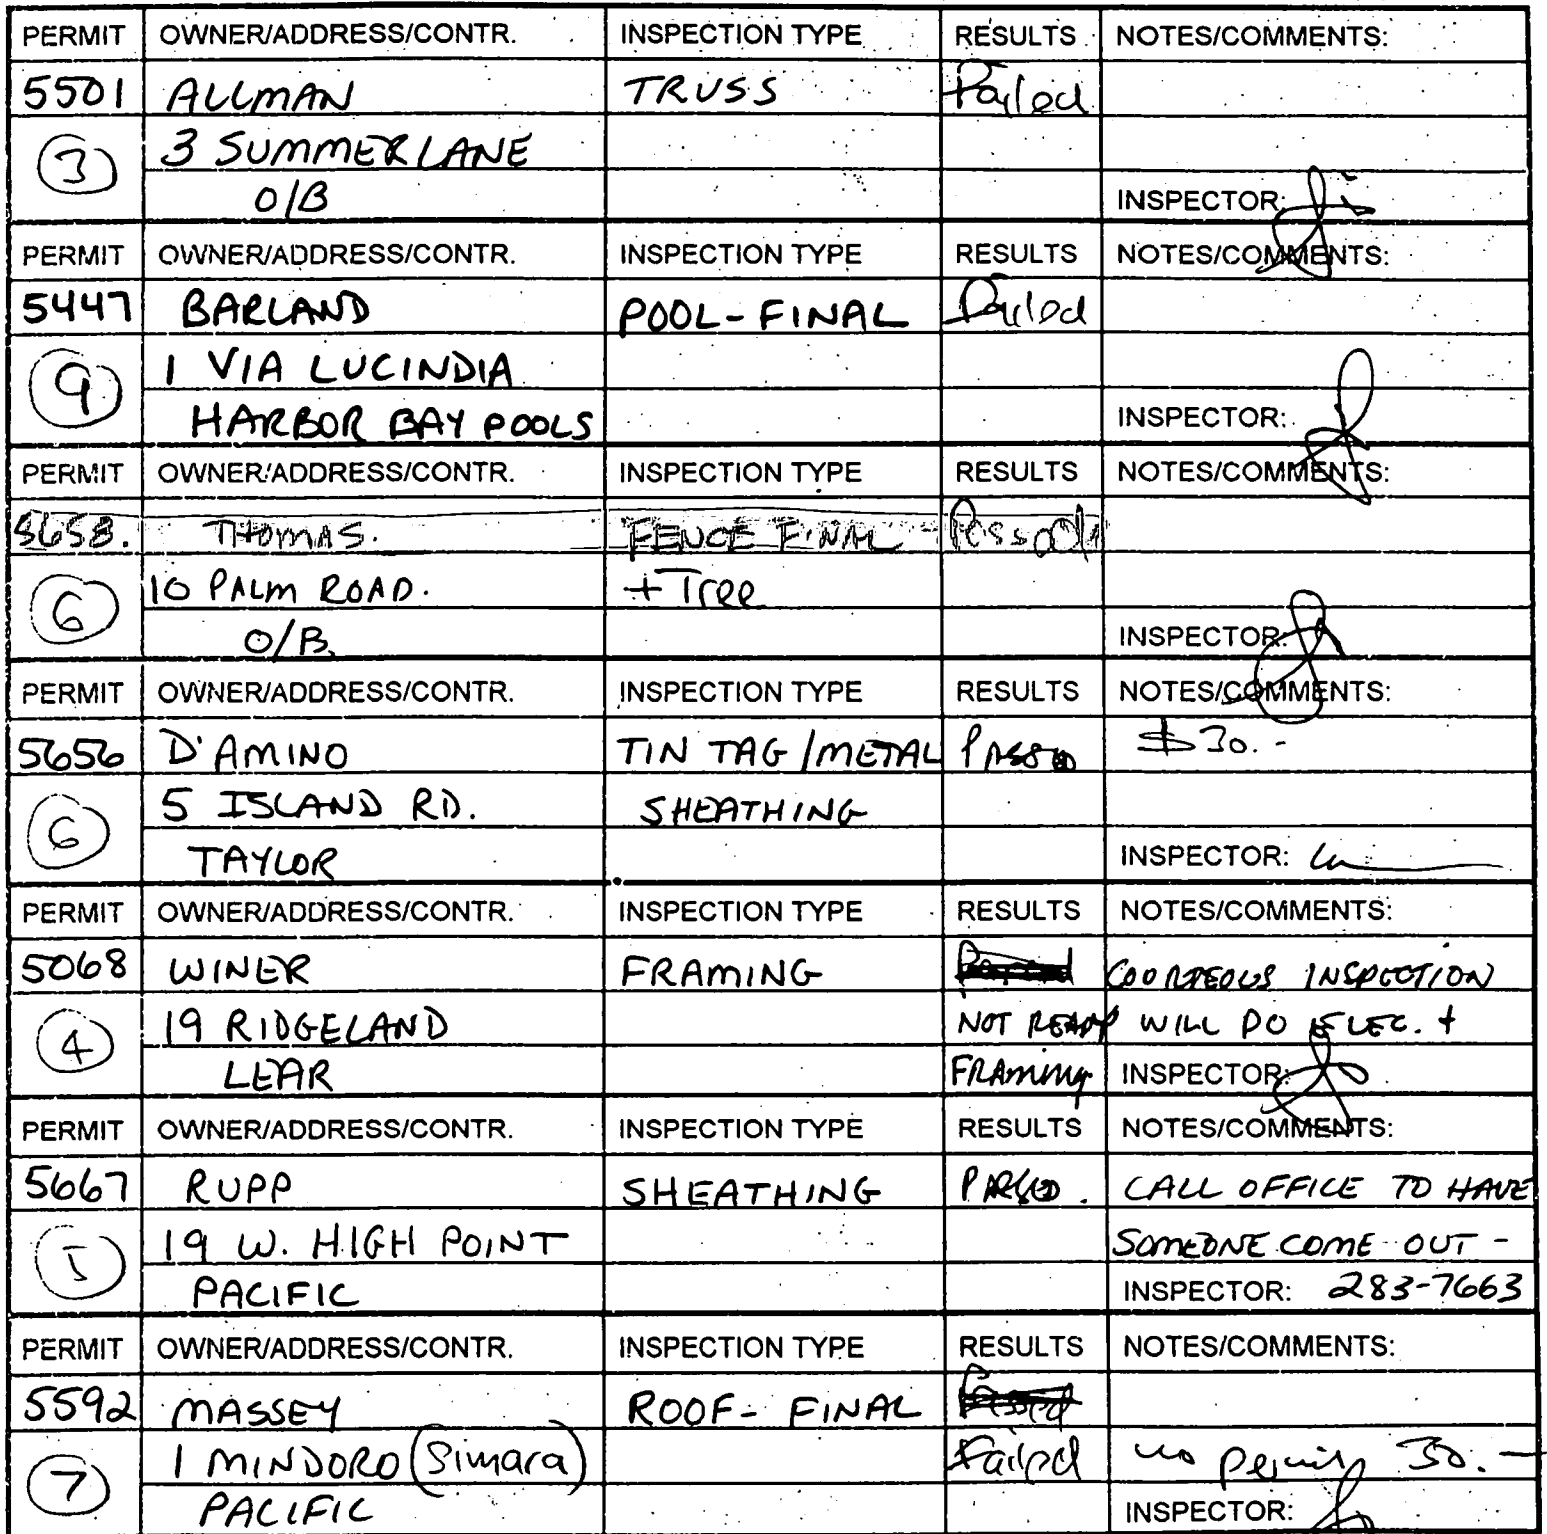 PERMIT OWNER/ADDRESS/CONTR. INSPECTION TYPE RESULTS NOTES/COMMENTS:
5501 ALLMAN TRUSS Failed
3 3 SUMMER LANE
O/B INSPECTOR:
PERMIT OWNER/ADDRESS/CONTR. INSPECTION TYPE RESULTS NOTES/COMMENTS:
5447 BARLAND POOL-FINAL Failed
9 1 VIA LUCINDIA
HARBOR BAY POOLS INSPECTOR:
PERMIT OWNER/ADDRESS/CONTR. INSPECTION TYPE RESULTS NOTES/COMMENTS:
5658. THOMAS. FENCE FINAL Passed
6 10 PALM ROAD. + Tree
O/B. INSPECTOR:
PERMIT OWNER/ADDRESS/CONTR. INSPECTION TYPE RESULTS NOTES/COMMENTS:
5656 D'AMINO TIN TAG/METAL PASSED $30.-
6 5 ISLAND RD. SHEATHING
TAYLOR INSPECTOR:
PERMIT OWNER/ADDRESS/CONTR. INSPECTION TYPE RESULTS NOTES/COMMENTS:
5068 WINER FRAMING COORTEOUS INSPECTION
4 19 RIDGELAND NOT READY WILL DO ELEC. +
LEAR FRAMING INSPECTOR:
PERMIT OWNER/ADDRESS/CONTR. INSPECTION TYPE RESULTS NOTES/COMMENTS:
5667 RUPP SHEATHING PASSED. CALL OFFICE TO HAVE
5 19 W. HIGH POINT SOMEONE COME OUT -
PACIFIC INSPECTOR: 283-7663
PERMIT OWNER/ADDRESS/CONTR. INSPECTION TYPE RESULTS NOTES/COMMENTS:
5592 MASSEY ROOF- FINAL Passed
7 1 MINDORO (Simara) Failed no permit 30.-
PACIFIC INSPECTOR: